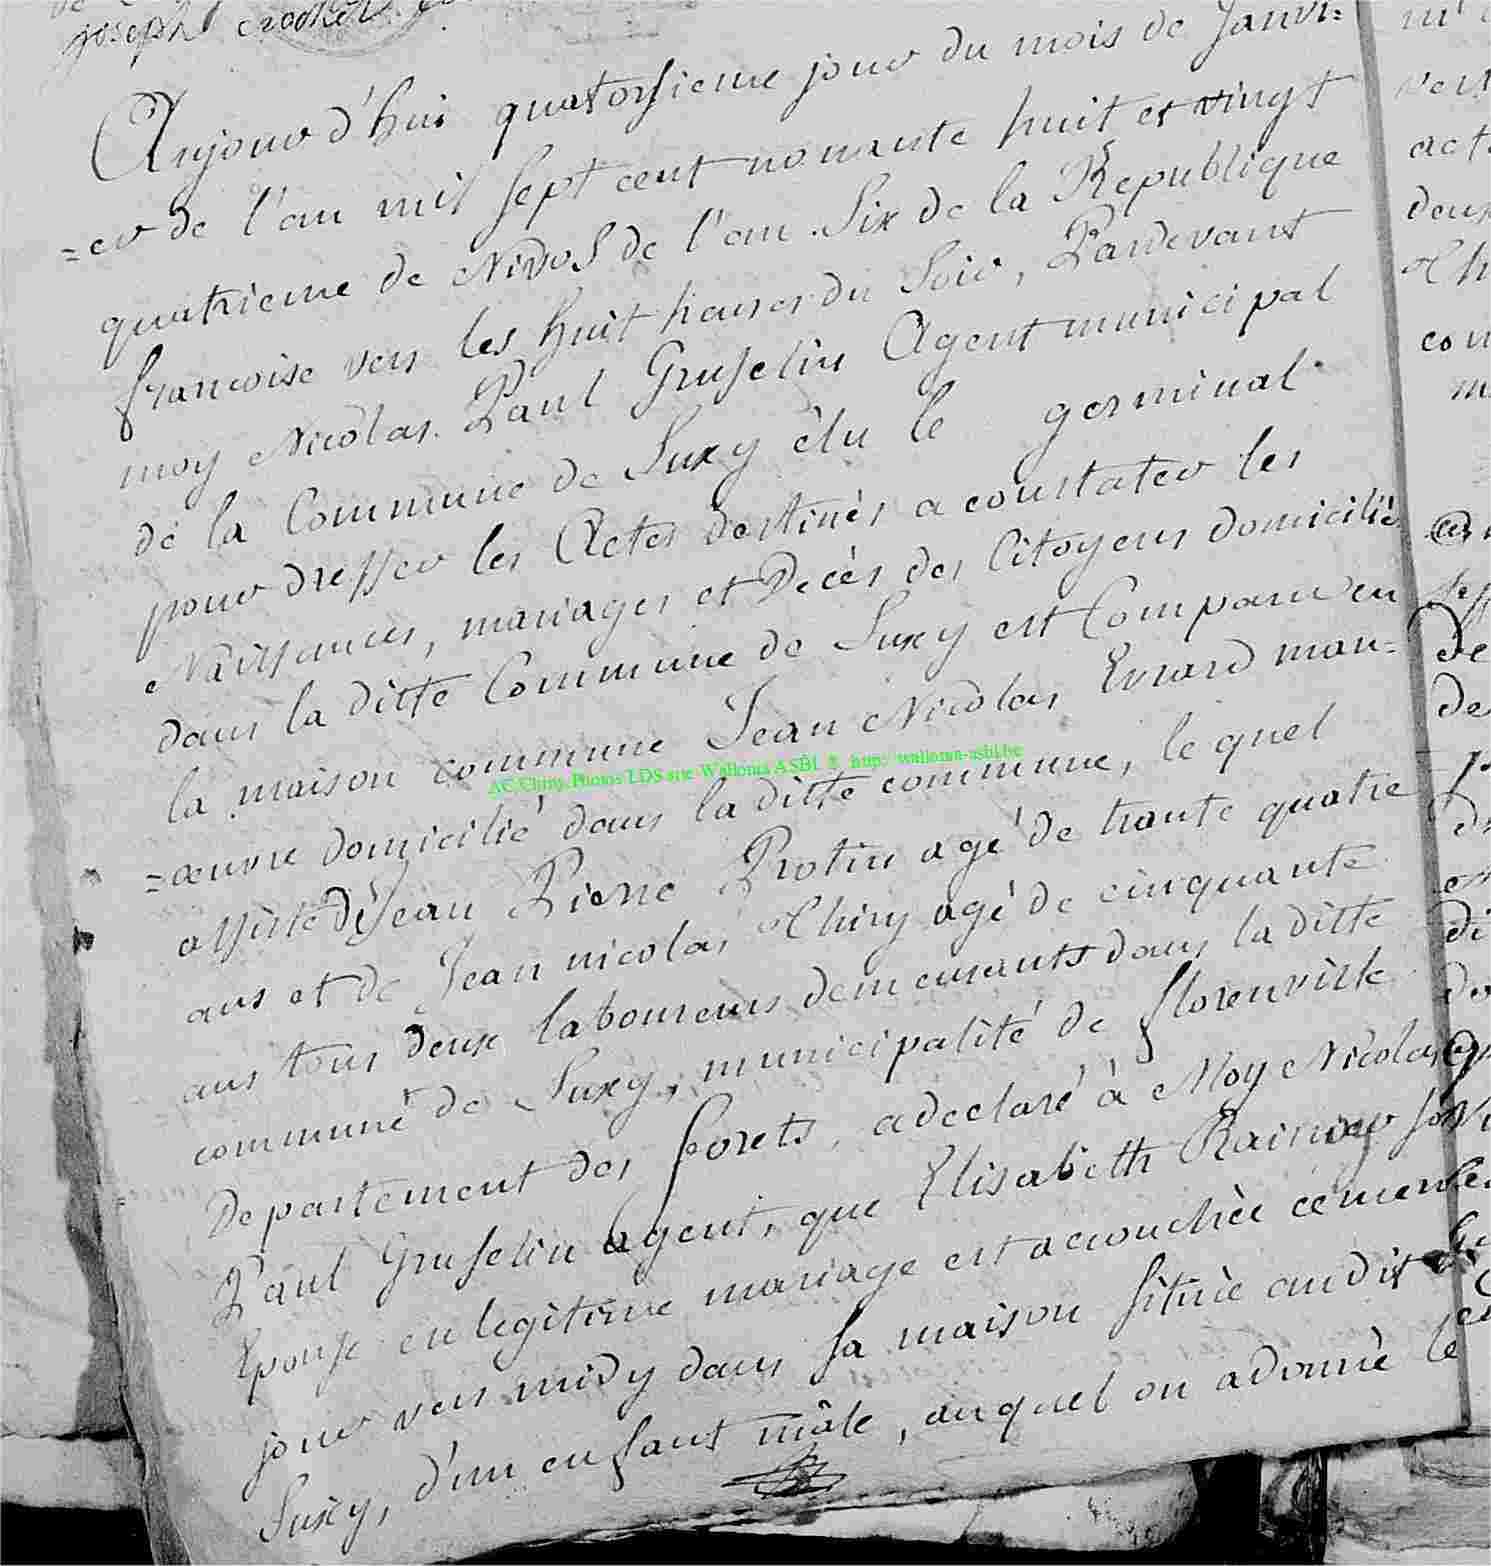 joseph
Aujourd'hui quatorsieme jour du mois de Janvi=
=er de l'an mil sept cent nonante huit et vingt
quatrieme de Nivos de l'an Six de la Republique
francoise vers les huit heures du Soir, Pardevant
moy Nicolas Paul Gruselin Agent municipal
de la Commune de Suxy êlu le germinal
pour dresser les Actes destinés a constater les
Naissances, mariages et Decès des Citoyens domicilié
dans la ditte Commune de Suxy est Comparu en
la maison commune Jean Nicolas Evrard man=
AC Chiny. Photos LDS sur Wallonia ASBL ® http://wallonia-asbl.be
=œuvre domicilié dans la ditte commune, le quel
assisté de Jean Pierre Protin agé de trante quatre
ans et de Jean nicolas Thiry agé de cinquante
ans tous deux laboureurs demeurants dans la ditte
commune de Suxy, municipalité de florenville
Departement des forets, a declaré à Moy Nicolas
Paul Gruselin agent, que Elisabeth
Epouse en legitime mariage est accouchèe cemerle
jour vers midy dans sa maison située audit
Suxy, d'un enfant mâle, auquel on a donné le